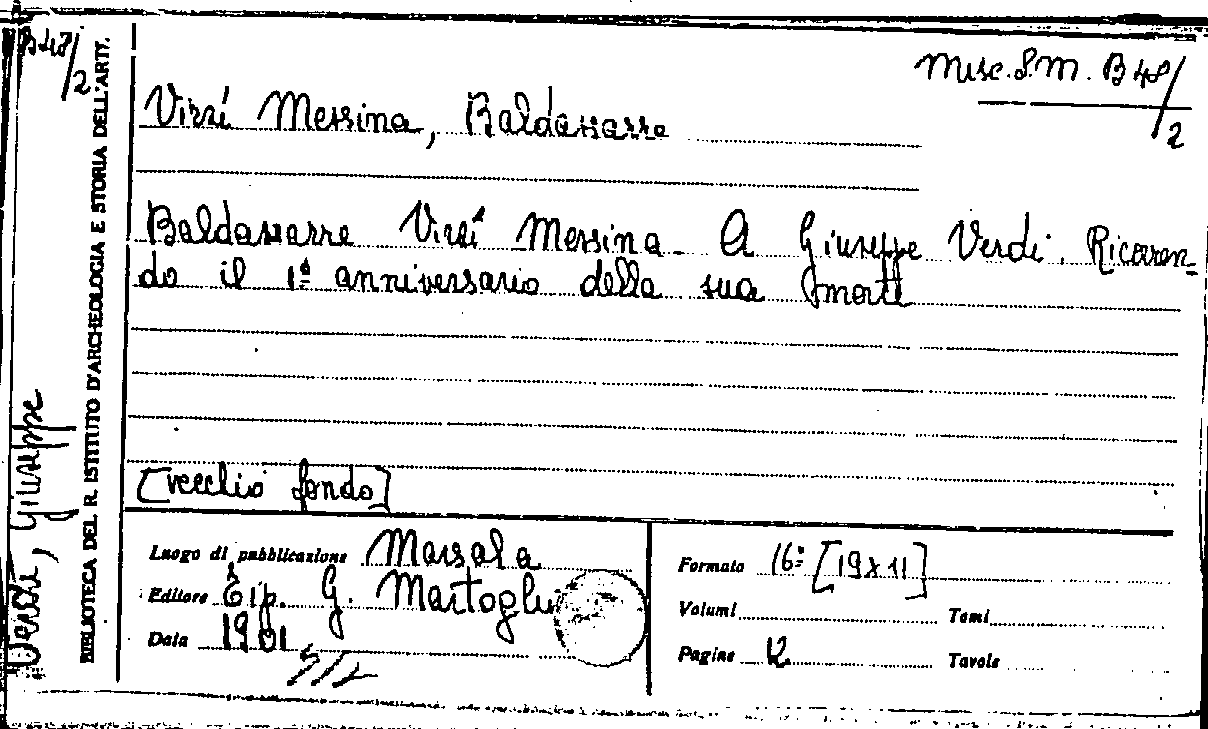 Misc. S.M. B 48/2
B 48/2
Virzí Messina, Baldassarre
Baldassarre Virzí Messina. A Giuseppe Verdi. Ricorren-
do il 1º anniversario della sua morte
[vecchio fondo]
Luogo di pubblicazione Marsala
Editore Tip. G. Martoglio
Data 1901
Formato 16º [19x11]
Volumi Tomi
Pagine 12
Tavole
BIBLIOTECA DEL R. ISTITUTO D'ARCHEOLOGIA E STORIA DELL'ARTE.
Verdi, Giuseppe